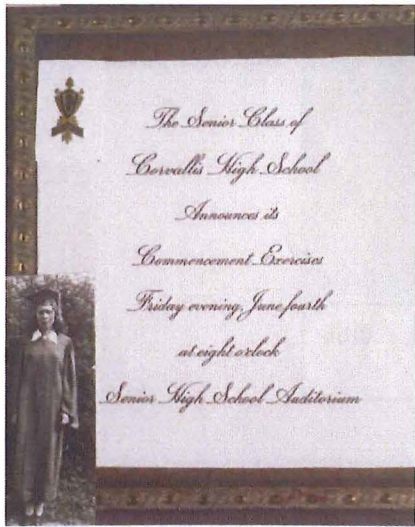 The Senior Class of
Corvallis High School
Announces its
Commencement Exercises
Friday evening, June fourth
at eight o'clock
Senior High School Auditorium